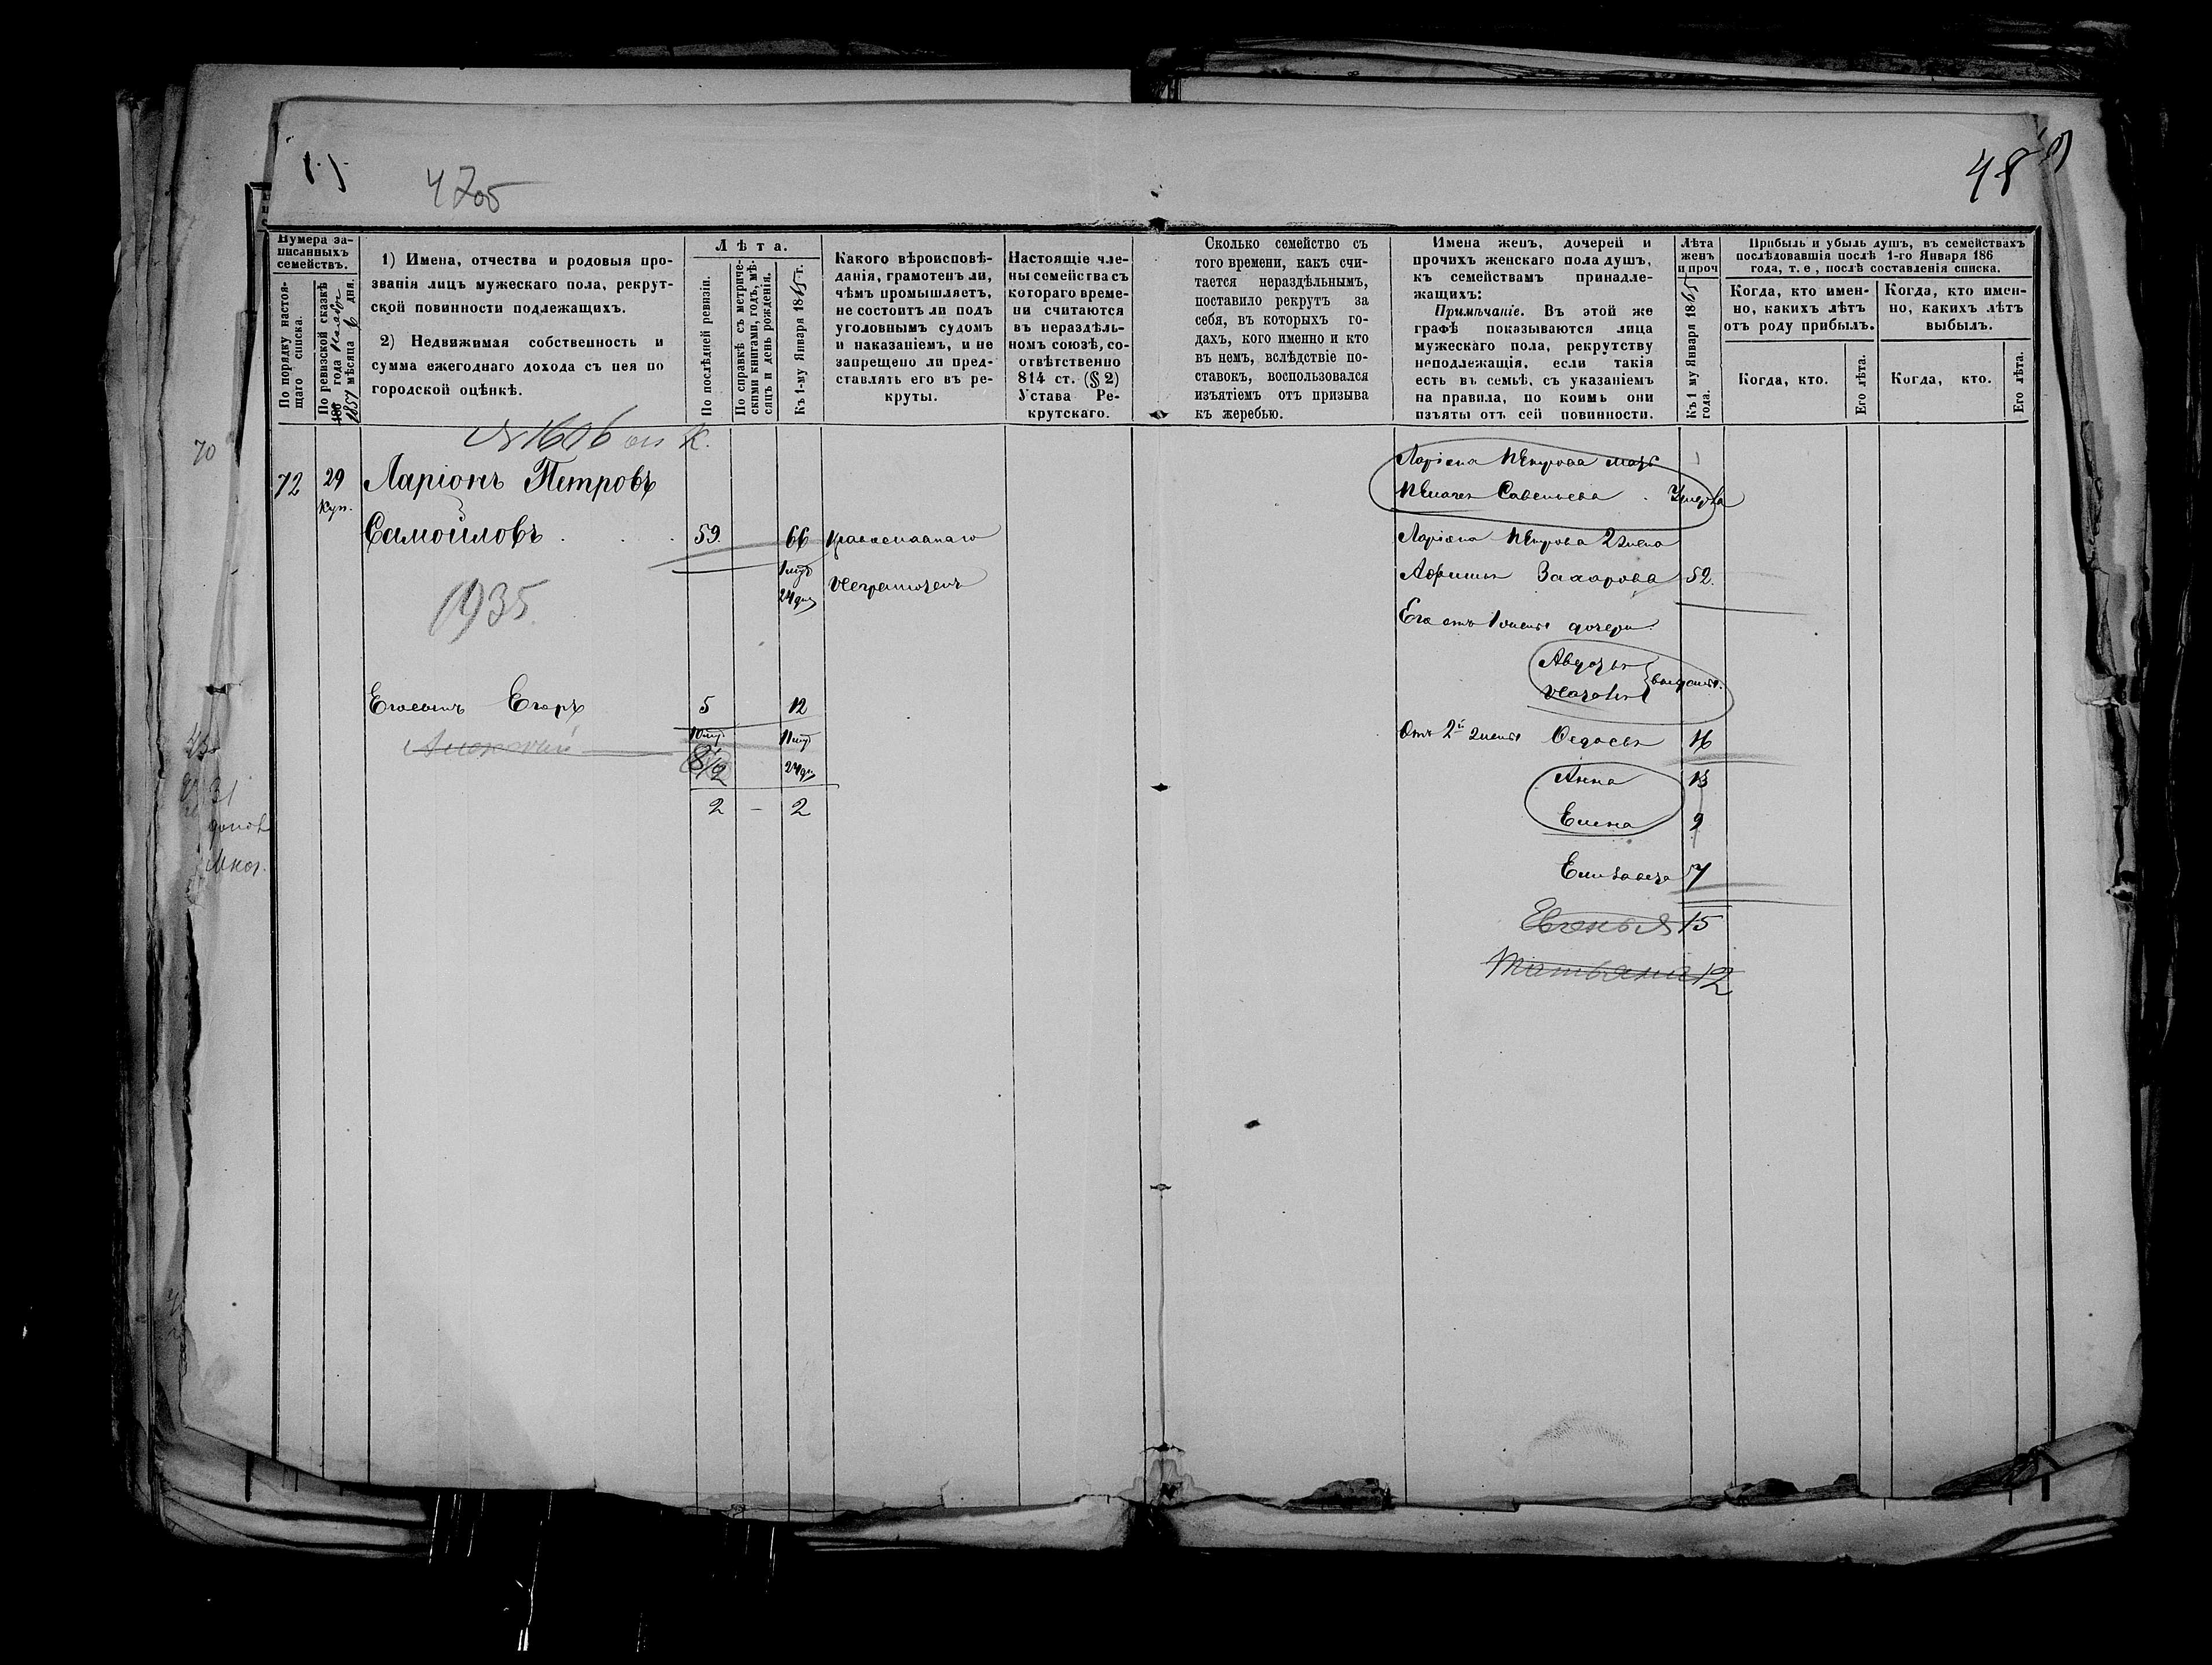 4705
48
Нумера за-
писанныхъ
семействъ.
По порядку настоя-
щаго списка.
По ревизской сказкѣ
1857 года Ноября
мѣсяца 6 дня.
1) Имена, отчества и родовыя про-
званія лицъ мужескаго пола, рекрут-
ской повинности подлежащихъ.
2) Недвижимая собственность и
сумма ежегоднаго дохода съ нея по
городской оцѣнкѣ.
Лѣта.
По послѣдней ревизіи.
По справкѣ съ метриче-
скими книгами, годъ, мѣ-
сяцъ и день рожденія.
Къ 1-му Января 1865 г.
Какого вѣроисповѣ-
данія, грамотенъ ли,
чѣмъ промышляетъ,
не состоитъ ли подъ
уголовнымъ судомъ
и наказаніемъ, и не
запрещено ли пред-
ставлять его въ ре-
круты.
Настоящіе чле-
ны семейства съ
котораго време-
ни считаются
въ нераздѣль-
номъ союзѣ, со-
отвѣтственно
814 ст. (§ 2)
Устава Ре-
крутскаго.
Сколько семейство съ
того времени, какъ счи-
тается нераздѣльнымъ,
поставило рекрутъ за
себя, въ которыхъ го-
дахъ, кого именно и кто
въ немъ, вслѣдствіе по-
ставокъ, воспользовался
изъятіемъ отъ призыва
къ жеребью.
Имена женъ, дочерей и
прочихъ женскаго пола душъ,
къ семействамъ принадле-
жащихъ:
Примѣчаніе. Въ этой же
графѣ показываются лица
мужескаго пола, рекрутству
неподлежащія, если такія
есть въ семьѣ, съ указаніемъ
на правила, по коимъ они
изъяты отъ сей повинности.
Лѣта
женъ
и проч
Къ 1 му Января 1865
года.
Прибыль и убыль душъ, въ семействахъ
послѣдовавшія послѣ 1-го Января 186
года, т. е., послѣ составленія списка.
Когда, кто имен-
но, какихъ лѣтъ
отъ роду прибылъ.
Когда, кто имен-
но, какихъ лѣтъ
выбылъ.
Когда, кто.
Его лѣта.
Когда, кто.
Его лѣта.
№ 1606 К.
70
72 29 Ларіонъ Петровъ
куп.
Самойловъ 59. 66 Православнаго
1 мѣс
24 дня Неграмотенъ
1935
Его сынъ Егоръ 5 12
10 мѣс 11 мѣс
Алексѣй 8/12 24 дн
2 — 2
Ларіона Петрова мать
Пелагея Савельева Умерла
Ларіона Петрова 2 жена
Афимья Захарова 52.
Его отъ 1 жены дочери:
Авдотья
Наталья
Отъ 2й жены Федосья 16
Анна 13
Елена 9
Елизавета 7
Евгенья 15
Татьяна 12
31